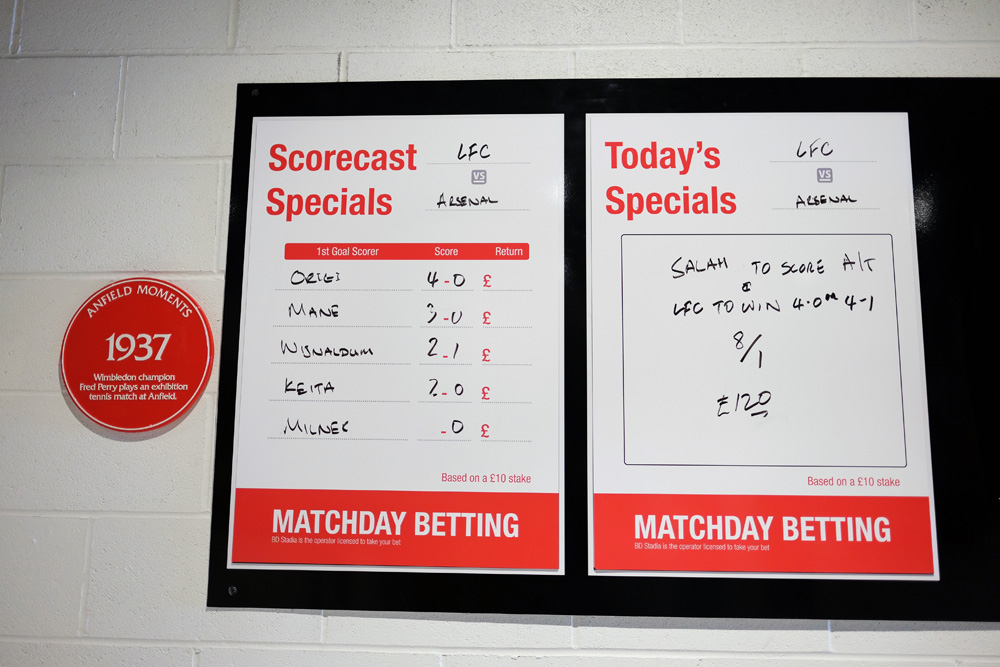 ANFIELD MOMENTS
1937
Wimbledon champion
Fred Perry plays an exhibition
tennis match at Anfield.
Scorecast
Specials
LFC
VS
ARSENAL
1st Goal Scorer Score Return
ORIGI 4-0 £
MANE 3-0 £
WIJNALDUM 2-1 £
KEITA 2-0 £
MILNER -0 £
Based on a £10 stake
MATCHDAY BETTING
BD Stadia is the operator licensed to take your bet
Today's
Specials
LFC
VS
ARSENAL
SALAH TO SCORE A/T
&
LFC TO WIN 4-0 OR 4-1
8/1
£120
Based on a £10 stake
MATCHDAY BETTING
BD Stadia is the operator licensed to take your bet